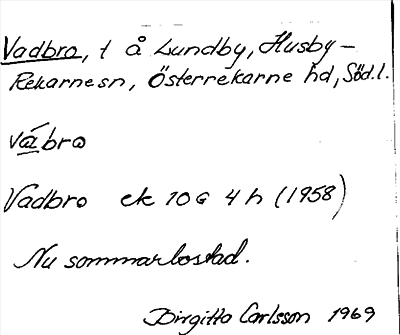 Vadbro, t å Lundby, Husby-
Rekarne sn, Österrekarne hd, Söd.l.
vábro
Vadbro ek 10G 4h (1958)
Nu sommarbostad.
Birgitta Carlsson 1969